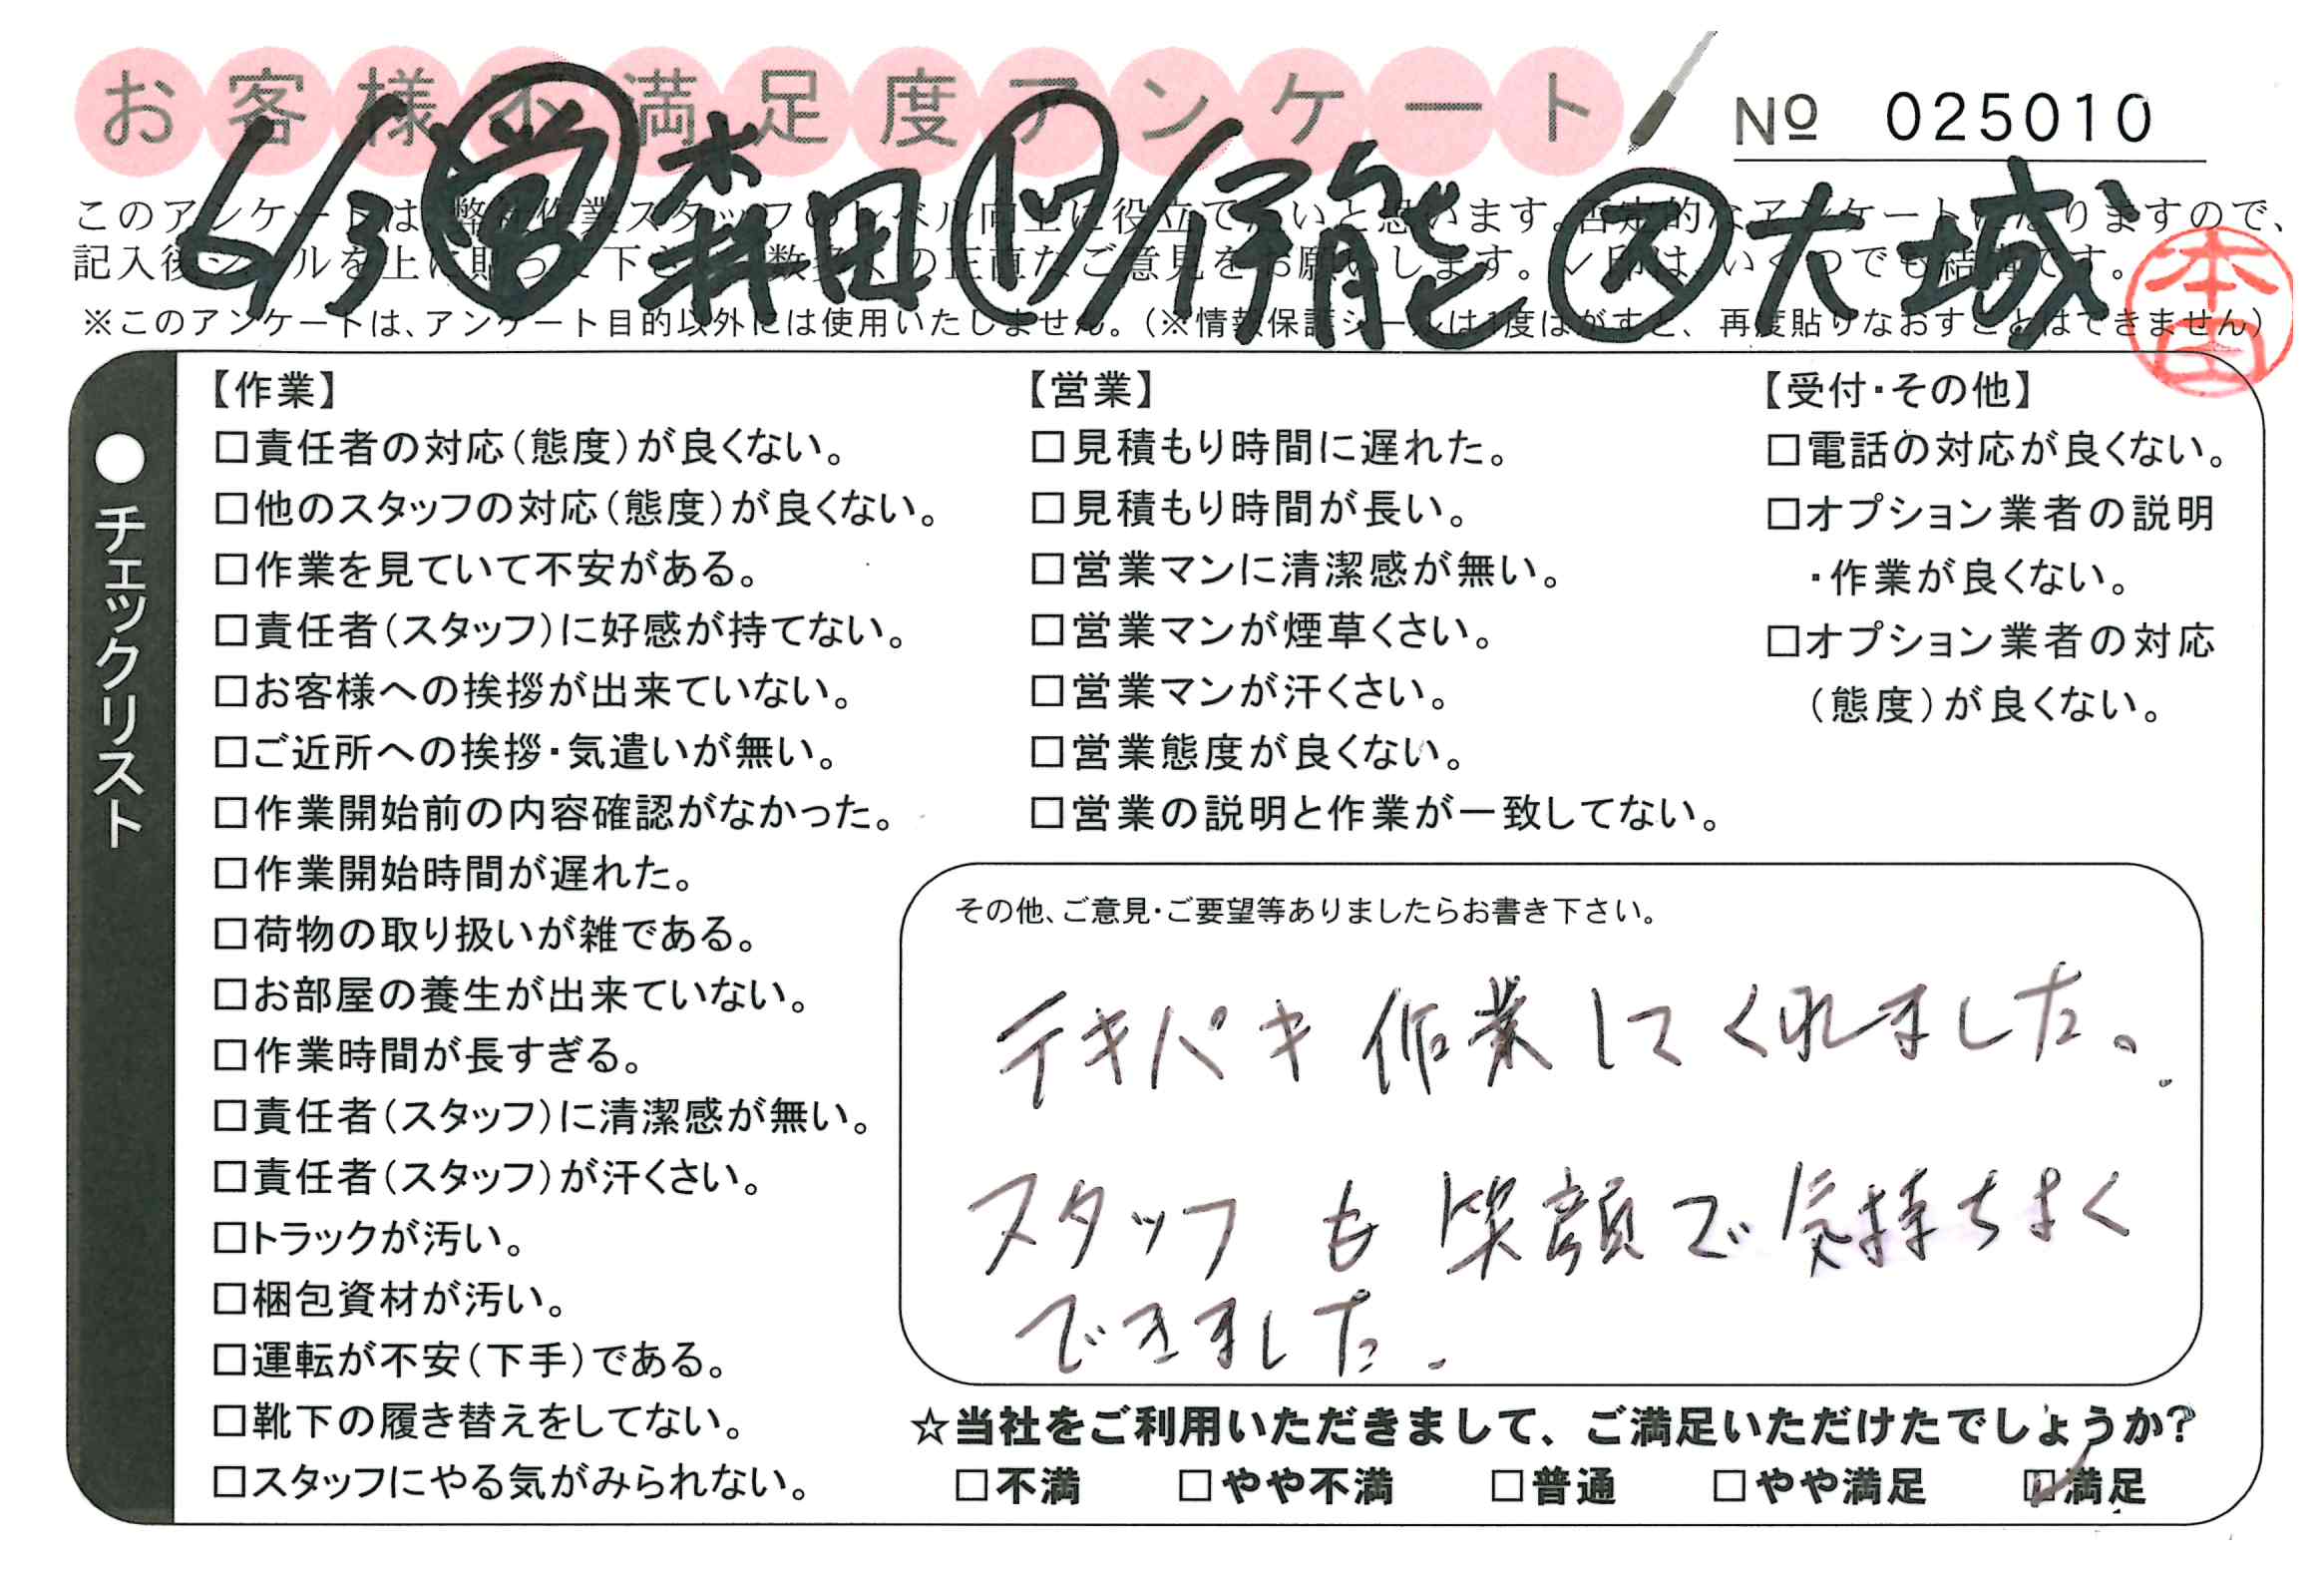 お客様不満足度アンケート
№ 025010
6/3 営 森田 リ/伊能 ス 大城
本田
このアンケートは、弊社作業スタッフのレベル向上に役立てたいと思います。否定的なアンケートになりますので、
記入後シールを上に貼って下さい。数多くの正直なご意見をお願いします。✓印は、いくつでも結構です。
※このアンケートは、アンケート目的以外には使用いたしません。(※情報保護シールは1度はがすと、再度貼りなおすことはできません)
●チェックリスト
【作業】
□責任者の対応(態度)が良くない。
□他のスタッフの対応(態度)が良くない。
□作業を見ていて不安がある。
□責任者(スタッフ)に好感が持てない。
□お客様への挨拶が出来ていない。
□ご近所への挨拶・気遣いが無い。
□作業開始前の内容確認がなかった。
□作業開始時間が遅れた。
□荷物の取り扱いが雑である。
□お部屋の養生が出来ていない。
□作業時間が長すぎる。
□責任者(スタッフ)に清潔感が無い。
□責任者(スタッフ)が汗くさい。
□トラックが汚い。
□梱包資材が汚い。
□運転が不安(下手)である。
□靴下の履き替えをしてない。
□スタッフにやる気がみられない。
【営業】
□見積もり時間に遅れた。
□見積もり時間が長い。
□営業マンに清潔感が無い。
□営業マンが煙草くさい。
□営業マンが汗くさい。
□営業態度が良くない。
□営業の説明と作業が一致してない。
【受付・その他】
□電話の対応が良くない。
□オプション業者の説明
・作業が良くない。
□オプション業者の対応
(態度)が良くない。
その他、ご意見・ご要望等ありましたらお書き下さい。
テキパキ作業してくれました。
スタッフも笑顔で気持ちよく
できました.
☆当社をご利用いただきまして、ご満足いただけたでしょうか?
□不満 □やや不満 □普通 □やや満足 ☑満足